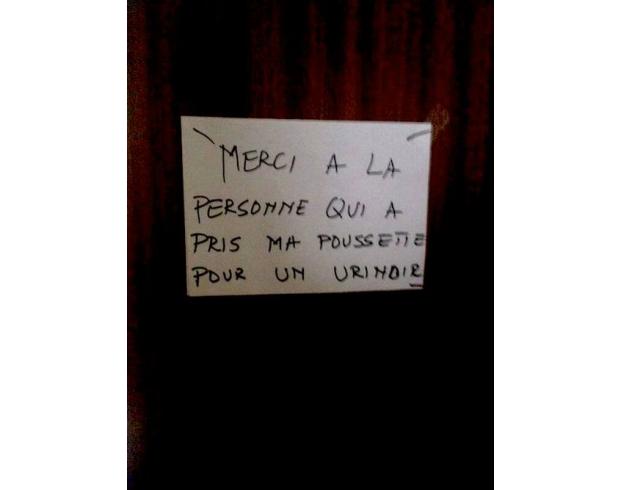 MERCI A LA
PERSONNE QUI A
PRIS MA POUSSETTE
POUR UN URINOIR